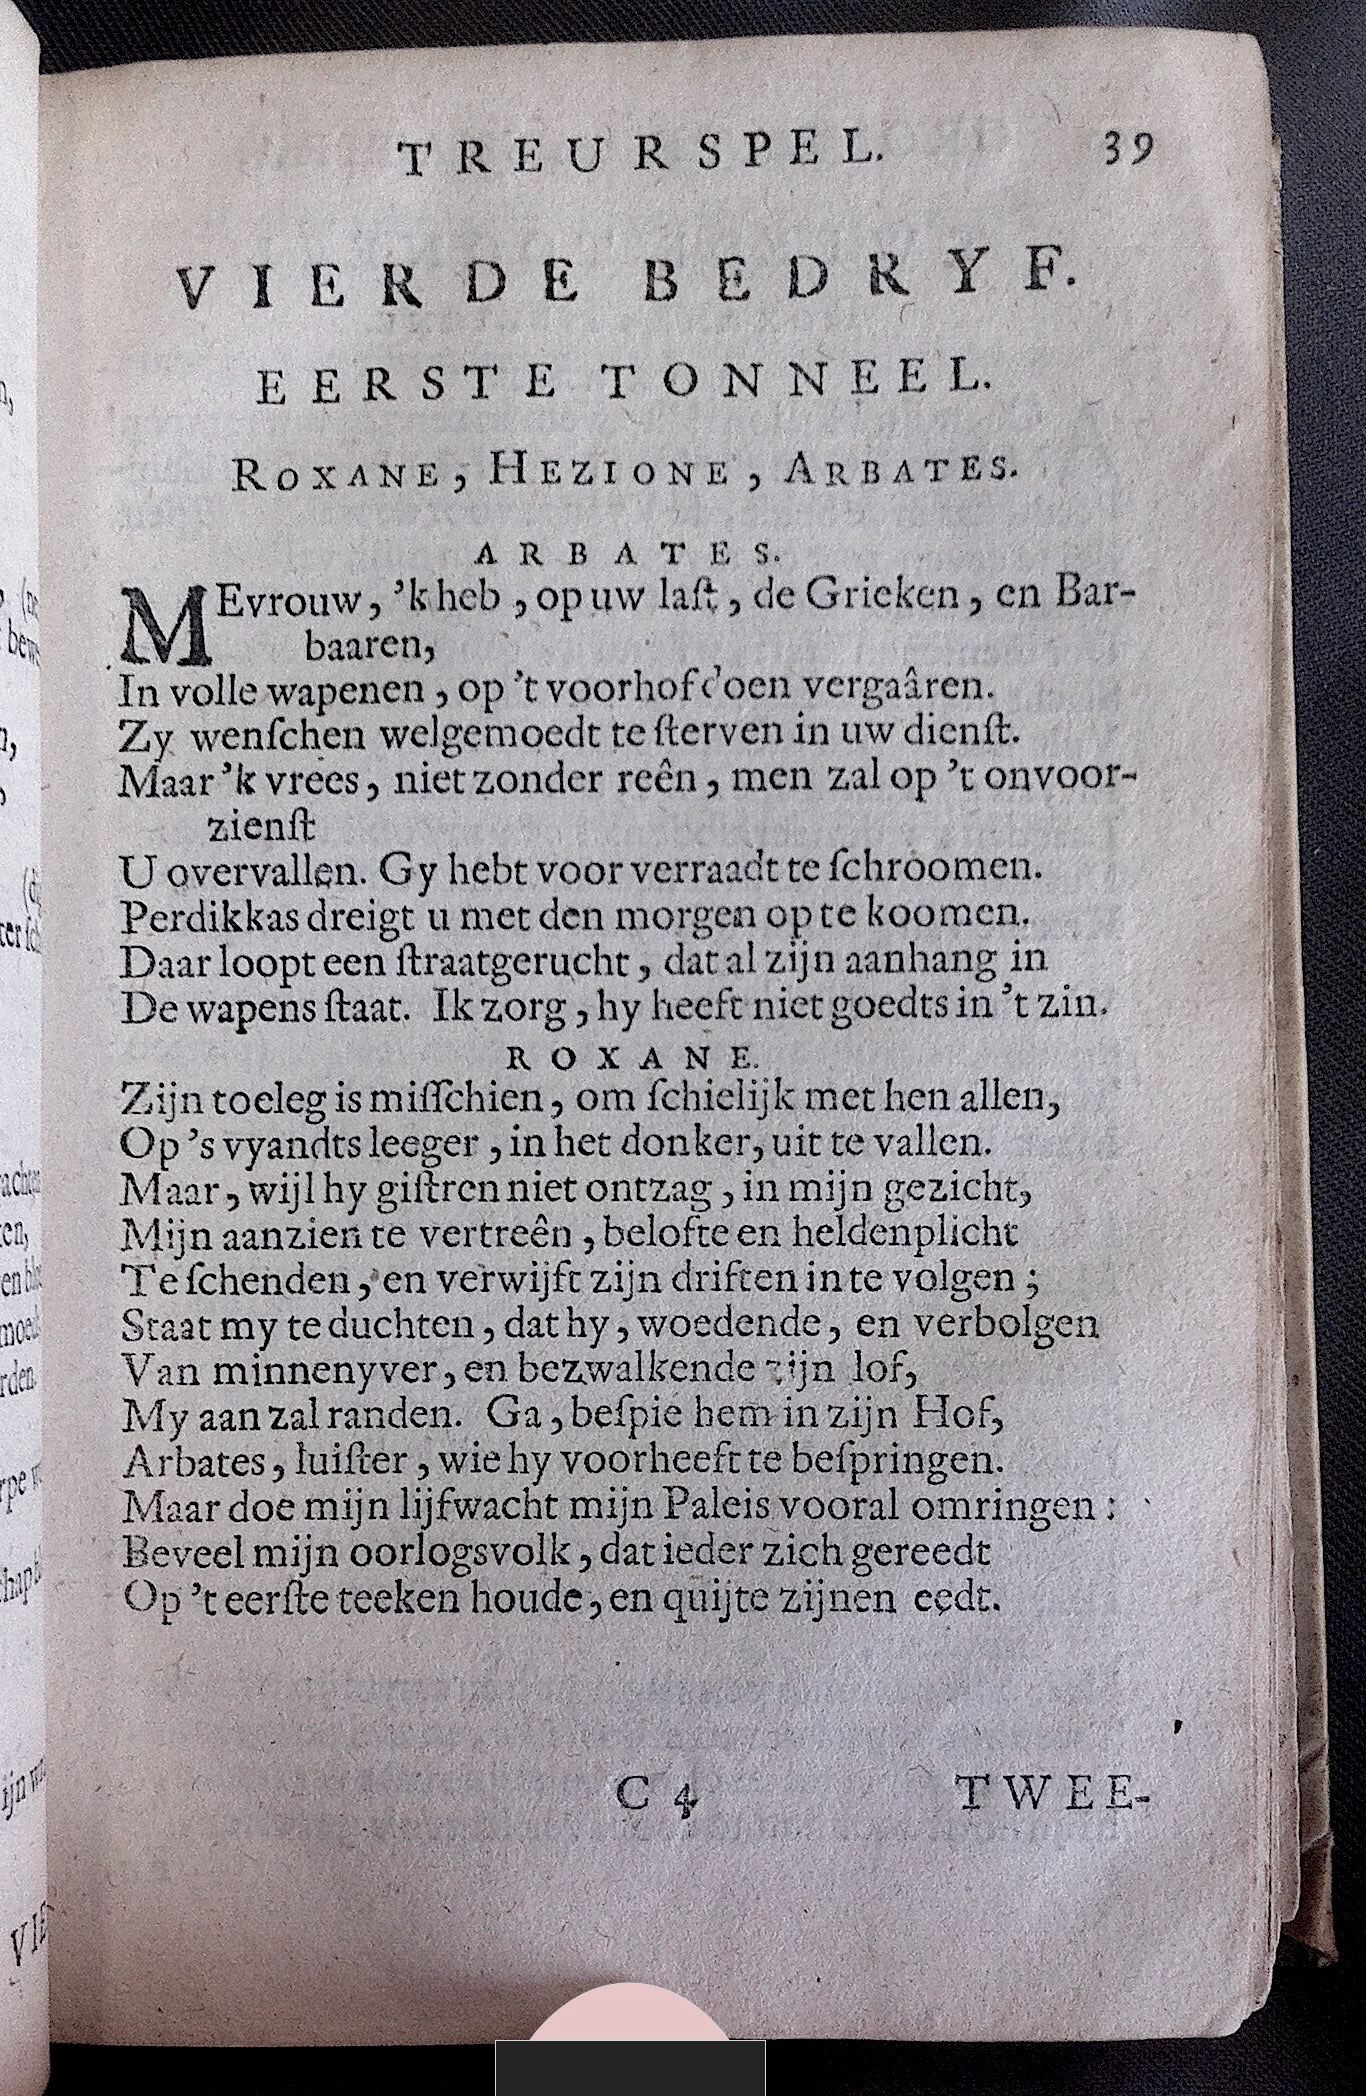 TREURSPEL. 39
VIERDE BEDRYF.
EERSTE TONNEEL.
ROXANE, HEZIONE, ARBATES.
ARBATES.
MEvrouw, 'k heb, op uw laſt, de Grieken, en Bar-
baaren,
In volle wapenen, op 't voorhof doen vergaâren.
Zy wenſchen welgemoedt te ſterven in uw dienſt.
Maar 'k vrees, niet zonder reên, men zal op 't onvoor-
zienſt
U overvallen. Gy hebt voor verraadt te ſchroomen.
Perdikkas dreigt u met den morgen op te koomen.
Daar loopt een ſtraatgerucht, dat al zijn aanhang in
De wapens ſtaat. Ik zorg, hy heeft niet goedts in 't zin.
ROXANE.
Zijn toeleg is miſſchien, om ſchielijk met hen allen,
Op 's vyandts leeger, in het donker, uit te vallen.
Maar, wijl hy giſtren niet ontzag, in mijn gezicht,
Mijn aanzien te vertreên, belofte en heldenplicht
Te ſchenden, en verwijft zijn driften in te volgen;
Staat my te duchten, dat hy, woedende, en verbolgen
Van minnenyver, en bezwalkende zijn lof,
My aan zal randen. Ga, beſpie hem in zijn Hof,
Arbates, luiſter, wie hy voorheeft te beſpringen.
Maar doe mijn lijfwacht mijn Paleis vooral omringen:
Beveel mijn oorlogsvolk, dat ieder zich gereedt
Op 't eerſte teeken houde, en quijte zijnen eedt.
C 4 TWEE-